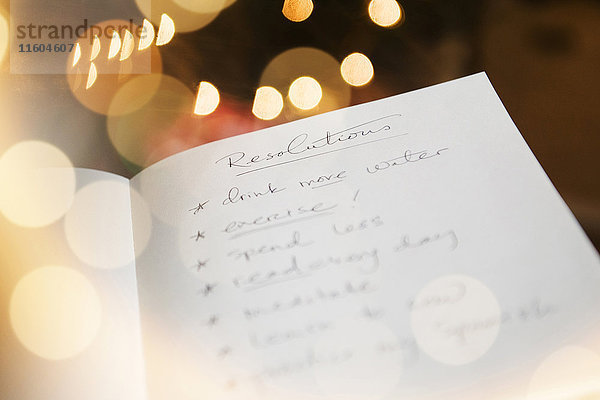 alamy
11604607
Resolutions
* drink more water
* exercise!
* spend less
* read every day
* meditate
* learn to
*